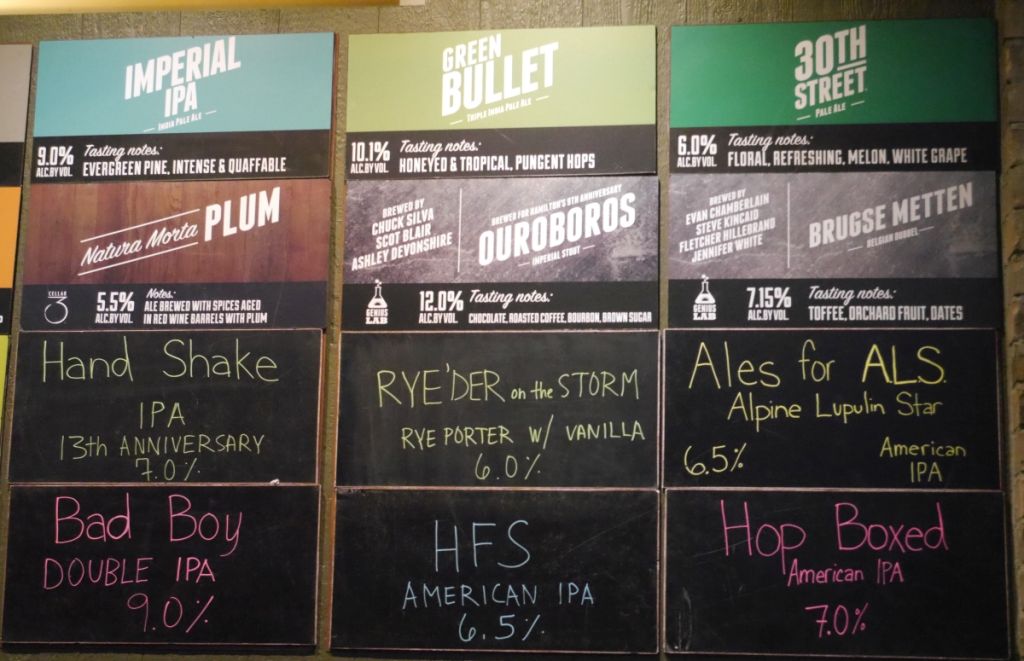 IMPERIAL
IPA
INDIA PALE ALE
9.0%
ALC.BY VOL
Tasting notes:
EVERGREEN PINE, INTENSE & QUAFFABLE
GREEN
BULLET
TRIPLE INDIA PALE ALE
10.1%
ALC.BY VOL
Tasting notes:
HONEYED & TROPICAL, PUNGENT HOPS
30TH
STREET
PALE ALE
6.0%
ALC.BY VOL
Tasting notes:
FLORAL, REFRESHING, MELON, WHITE GRAPE
Natura Morta PLUM
CELLAR
3
5.5%
ALC.BY VOL
Notes:
ALE BREWED WITH SPICES AGED
IN RED WINE BARRELS WITH PLUM
BREWED BY
CHUCK SILVA
SCOT BLAIR
ASHLEY DEVONSHIRE
BREWED FOR HAMILTON'S 9TH ANNIVERSARY
OUROBOROS
IMPERIAL STOUT
GENIUS
LAB
12.0%
ALC.BY VOL
Tasting notes:
CHOCOLATE, ROASTED COFFEE, BOURBON, BROWN SUGAR
BREWED BY
EVAN CHAMBERLAIN
STEVE KINCAID
FLETCHER HILLEBRAND
JENNIFER WHITE
BRUGSE METTEN
BELGIAN DUBBEL
GENIUS
LAB
7.15%
ALC.BY VOL
Tasting notes:
TOFFEE, ORCHARD FRUIT, DATES
Hand Shake
IPA
13th ANNIVERSARY
7.0%
RYE'DER on the STORM
RYE PORTER W/ VANILLA
6.0%
Ales for ALS.
Alpine Lupulin Star
6.5%
American
IPA
Bad Boy
DOUBLE IPA
9.0%
HFS
AMERICAN IPA
6.5%
Hop Boxed
American IPA
7.0%